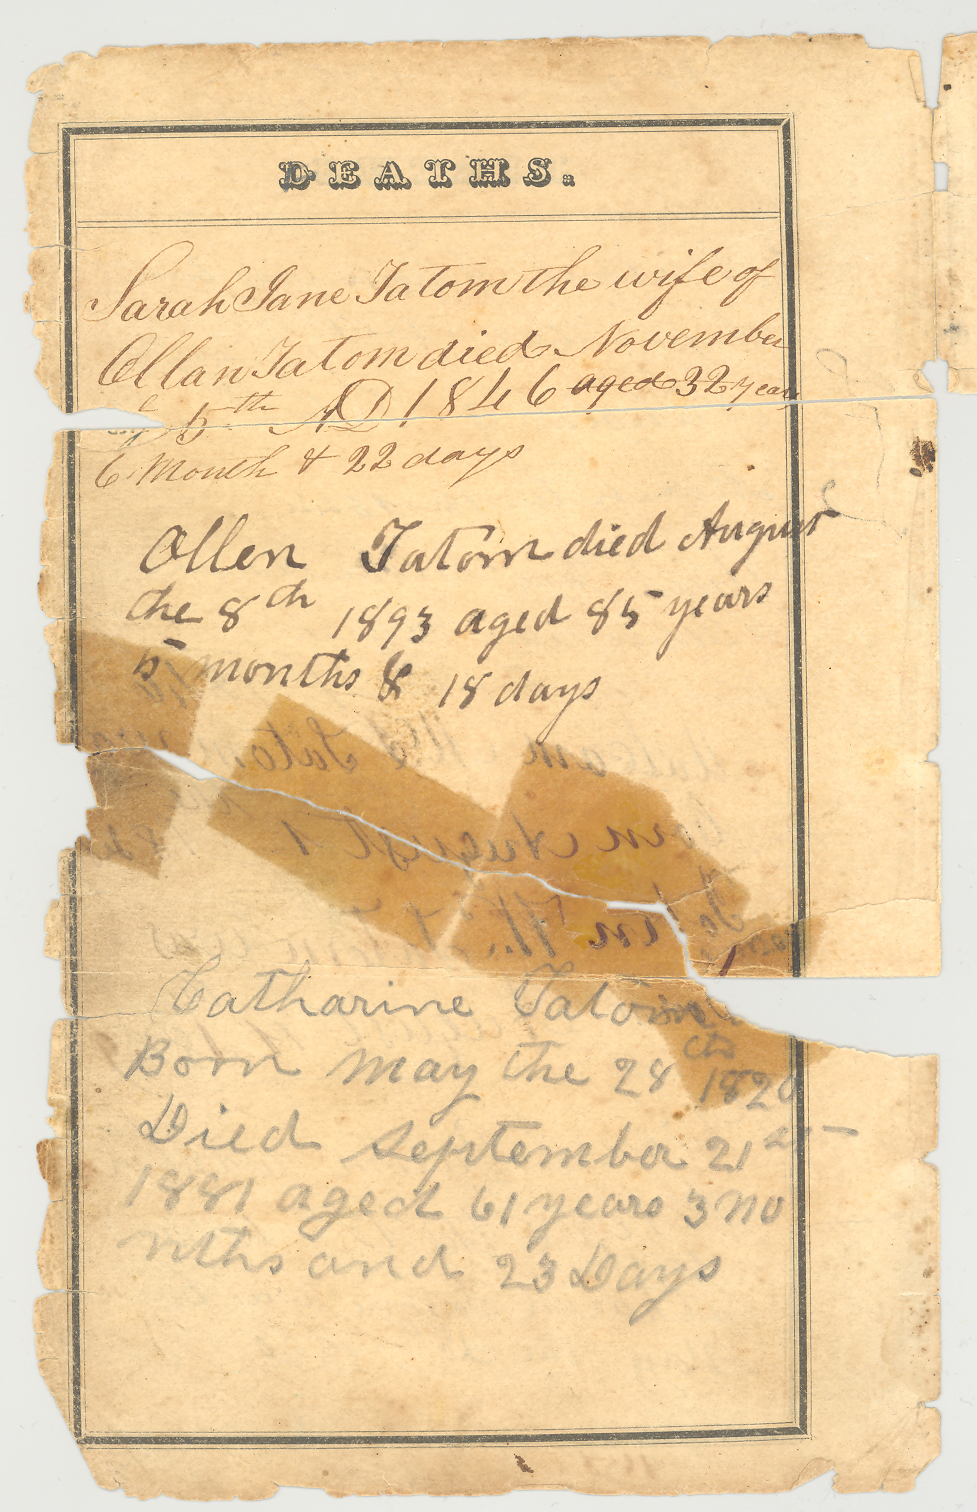 DEATHS.
Sarah Jane Tatom the wife of
Allan Tatom died November
5th AD 1846 aged 32 years
6 Month & 22 days
Allen Tatom died August
the 8th 1893 aged 85 years
5 months & 18 days
Catharine Tatom
Born may the 28 1820
Died September 21
1881 aged 61 years 3 mo
nths and 23 Days